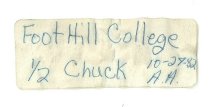 Foot Hill College
1/2 Chuck 10-27-82
A.A.